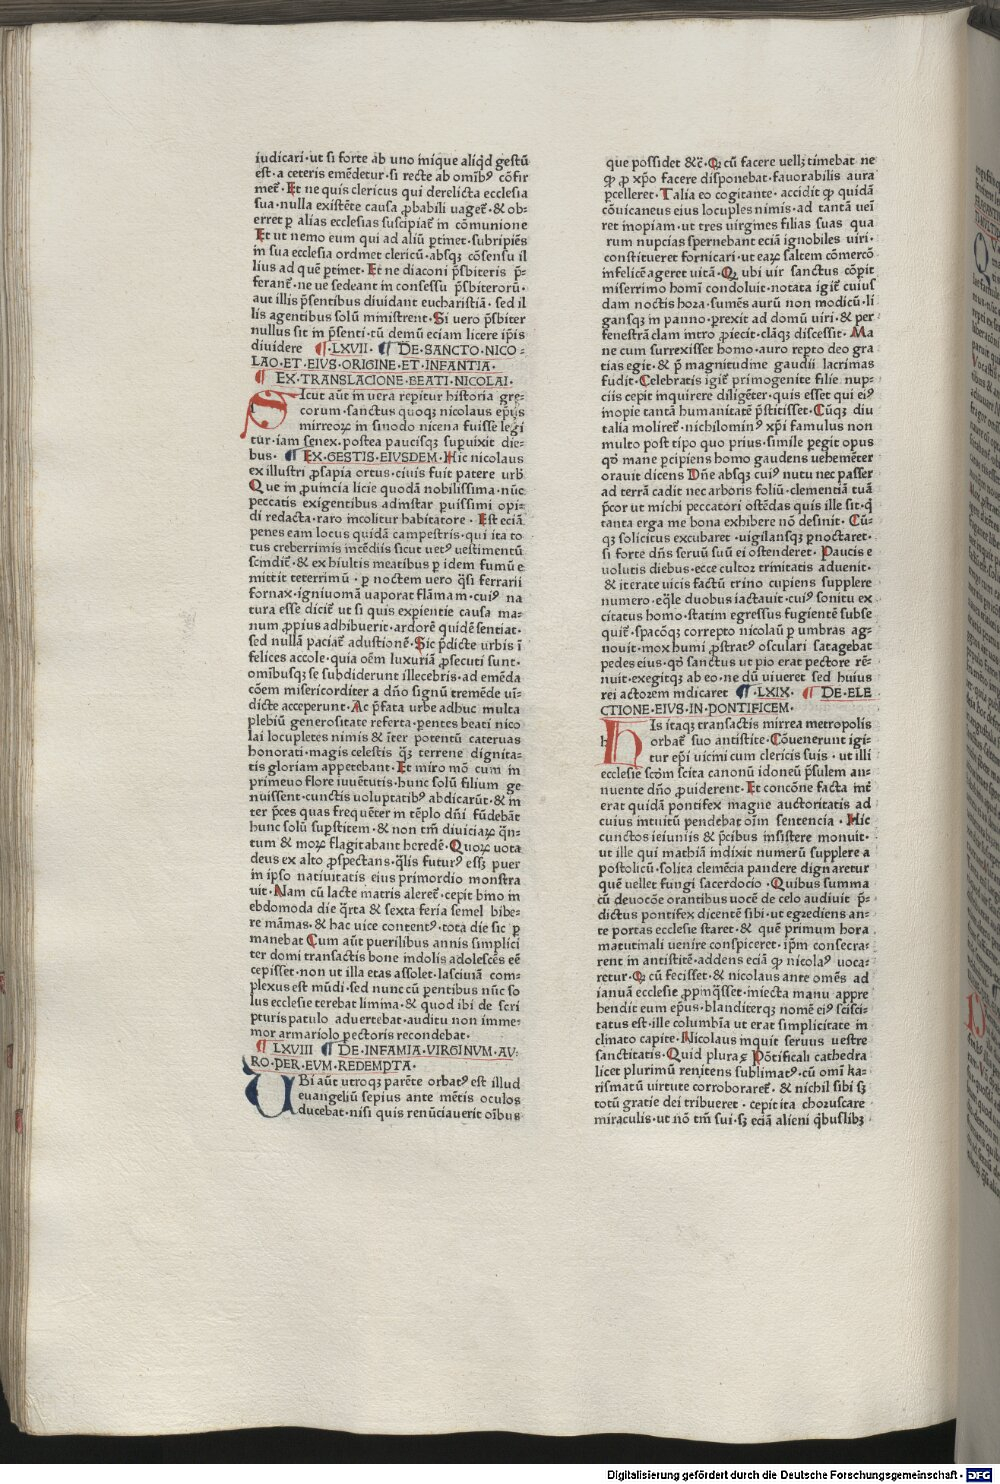 iudicari·ut si forte ab uno inique aliq̃d gestũ
est·a ceteris emẽdetur·si recte ab omibꝰ cõfir
met᷑·Et ne quis clericus qui derelicta ecclesia
sua·nulla existẽte causa ꝓbabili uaget᷑·& ob-
erret ꝑ alias ecclesias suscipiat᷑ in cõmunione
Et ut nemo eum qui ad aliũ ꝑtinet·subripiẽs
in sua ecclesia ordinet clericũ·absqꝫ cõsensu il
lius ad quẽ ꝑtinet·Et ne diaconi p̃sbiteris p̃-
ferant᷑·ne ue sedeant in consessu p̃sbiterorũ·
aut illis p̃sentibus diuidant eucharistiã·sed il
lis agentibus solũ ministrent·Si uero p̃sbiter
nullus sit in p̃senti·tũ demũ eciam licere ip̃is
diuidere ¶·LXVII· ¶ DE·SANCTO·NICO-
LAO·ET·EIVS·ORIGINE·ET·INFANTIA·
¶ EX·TRANSLACIONE·BEATI·NICOLAI·
SIcut aũt in uera reꝑitur historia gre-
corum·sanctus quoqꝫ nicolaus ep̃us
mirreoꝝ in sinodo nicena fuisse legi
tur·iam senex·postea paucisqꝫ supuixit die-
bus· ¶ EX·GESTIS·EIVSDEM·Hic nicolaus
ex illustri ꝓsapia ortus·ciuis fuit patere urb᷒
Que in ꝓuincia licie quodã nobilissima·nũc
peccatis exigentibus admistar puissimi opi-
di redacta·raro incolitur habitatore· Est eciã
penes eam locus quidã campestris·qui ita to
tus creberrimis incẽdiis sicut uetꝰ uestimentũ
scindit᷑·& ex hiultis meatibus ꝑ idem fumũ e
mittit teterrimũ·ꝑ noctem uero q̃si ferrarii
fornax·igniuomã uaporat flãmam·cuiꝰ na
tura esse dicit᷑ ut si quis expientie causa ma-
num ꝓpius adhibuerit·ardorẽ quidẽ sentiat·
sed nullã paciat᷑ adustionẽ·Sic p̃dicte urbis ĩ
felices accole·quia oẽm luxuriã ꝓsecuti sunt·
omibusqꝫ se subdiderunt illecebris·ad emẽda
cõem misericorditer a dño signũ tremẽde uĩ-
dicte acceperunt·Ac p̃fata urbe adhuc multa
plebiũ generositate referta·pentes beati nico
lai locupletes nimis & ĩter potentũ cateruas
honorati·magis celestis q̃ꝫ terrene dignita-
tis gloriam appetebant·Et miro mõ cum in
primeuo flore iuuẽtutis·hunc solũ filium ge
nuissent·cunctis uoluptatibꝰ abdicarũt·& in
ter p̃ces quas frequẽter in tẽplo dñi fũdebãt
hunc solũ supstitem·& non tm̃ diuiciaꝝ q̃n-
tum & moꝝ flagitabant heredẽ·Quoꝝ uota
deus ex alto ꝓspectans·q̃lis futurꝰ essꝫ puer
in ipso natiuitatis eius primordio monstra
uit·Nam cũ lacte matris aleret᷑·cepit bino in
ebdomoda die q̃rta & sexta feria semel bibe-
re mãmas·& hac uice contentꝰ·tota die sic ꝑ
manebat Cum aũt puerilibus annis simplici
ter domi transactis bone indolis adolescẽs eẽ
cepisset·non ut illa etas assolet·lasciuiã com-
plexus est mũdi·sed nunc cũ ꝑentibus nũc so
lus ecclesie terebat limina·& quod ibi de scri
pturis patulo aduertebat·auditu non imme-
mor armariolo pectoris recondebat·
¶ LXVIII ¶ DE·INFAMIA·VIRGINVM·AV-
RO·PER·EVM·REDEMPTA·
UBi aũt utroqꝫ parẽte orbatꝰ est illud
euangeliũ sepius ante mẽtis oculos
ducebat·nisi quis renũciauerit oĩbus
que possidet &c̃·Qꝫ cũ facere uellꝫ timebat ne
ꝙ ꝓ xp̃o facere disponebat·fauorabilis aura
ꝑcelleret·Talia eo cogitante·accidit ꝙ quidã
cõuicaneus eius locuples nimis·ad tantã ueĩ
ret inopiam·ut tres uirgines filias suas qua
rum nupcias spernebant eciã ignobiles uiri·
constitueret fornicari·ut eaꝝ saltem cõmercõ
infelicẽ ageret uitã·Qꝫ ubi uir sanctus cõꝑit
miserrimo homĩ condoluit·notata igit᷑ cuius
dam noctis hora·sumẽs aurũ non modicũ·li
gansqꝫ in panno·ꝑrexit ad domũ uiri·& per
fenestrã clam intro ꝓiecit·clãqꝫ discessit· Ma
ne cum surrexisset homo·auro reꝑto deo gra
tias egit·& p̃ magnitudine gaudii lacrimas
fudit·Celebratis igit᷑ primogenite filie nup-
ciis cepit inquirere diligẽter·quis esset qui eiꝰ
inopie tantã humanitatẽ p̃stitisset·Cũqꝫ diu
talia moliret᷑·nichilominꝰ xp̃i famulus non
multo post tipo quo prius·simile ꝑegit opus
qõ mane ꝑcipiens homo gaudens uehemẽter
orauit dicens Dñe absqꝫ cuiꝰ nutu nec passer
ad terrã cadit nec arboris foliũ·clementiã tuã
p̃cor ut michi peccatori ostẽdas quis ille sit·q̃
tanta erga me bona exhibere nõ desinit· Cũ-
qꝫ solicitus excubaret·uigilansqꝫ ꝑnoctaret·
si forte dñs seruũ suũ ei ostenderet·Paucis e
uolutis diebus·ecce cultor trinitatis aduenit·
& iterate uicis factũ trino cupiens supplere
numero·eq̃le duobus iactauit·cuiꝰ sonitu ex
citatus homo·statim egressus fugientẽ subse
quit᷑·spacõqꝫ correpto nicolaũ ꝑ umbras ag-
nouit·mox humi ꝓstratꝰ osculari satagebat
pedes eius·qõ sanctus ut pio erat pectore rẽ-
nuit·exegitqꝫ ab eo·ne dũ uiueret sed huius
rei actorem indicaret ¶·LXIX· ¶ DE·ELE
CTIONE·EIVS·IN·PONTIFICEM·
HIs itaqꝫ transactis mirrea metropolis
orbat᷑ suo antistite·Cõuenerunt igi-
tur ep̃i uicini cum clericis suis·ut illi
ecclesie scd̃m scita canonũ idoneũ p̃sulem an-
nuente dño ꝓuiderent·Et concõne facta int᷑
erat quidã pontifex magne auctoritatis ad
cuius intuitũ pendebat oĩm sentencia·Hic
cunctos ieiuniis & p̃cibus insistere monuit·
ut ille qui mathiã indixit numerũ supplere a
postolicũ·solita clemẽcia pandere dignaretur
quẽ uellet fungi sacerdocio·Quibus summa
cũ deuocõe orantibus uocẽ de celo audiuit p̃-
dictus pontifex dicentẽ sibi·ut egrediens an-
te portas ecclesie staret·& quẽ primum hora
matutinali uenire conspiceret·ip̃m consecra-
rent in antistitẽ·addens eciã ꝙ nicolaꝰ uoca-
retur·Qꝫ cũ fecisset·& nicolaus ante omẽs ad
ianuã ecclesie ꝓpinq̃sset·iniecta manu appre
hendit eum ep̃us·blanditerqꝫ nomẽ eiꝰ scisci-
tatus est·ille columbĩa ut erat simplicitate in
clinato capite·Nicolaus inquit seruus uestre
sanctitatis·Quid plura ꝫ Põtificali cathedra
licet plurimũ renitens sublimatꝰ·cũ omĩ ka-
rismatũ uirtute corroboraret᷑·& nichil sibi sꝫ
totũ gratie dei tribueret·cepit ita choruscare
miraculis·ut nõ tm̃ sui·sꝫ eciã alieni q̃buslibꝫ
Digitalisierung gefördert durch die Deutsche Forschungsgemeinschaft - DFG